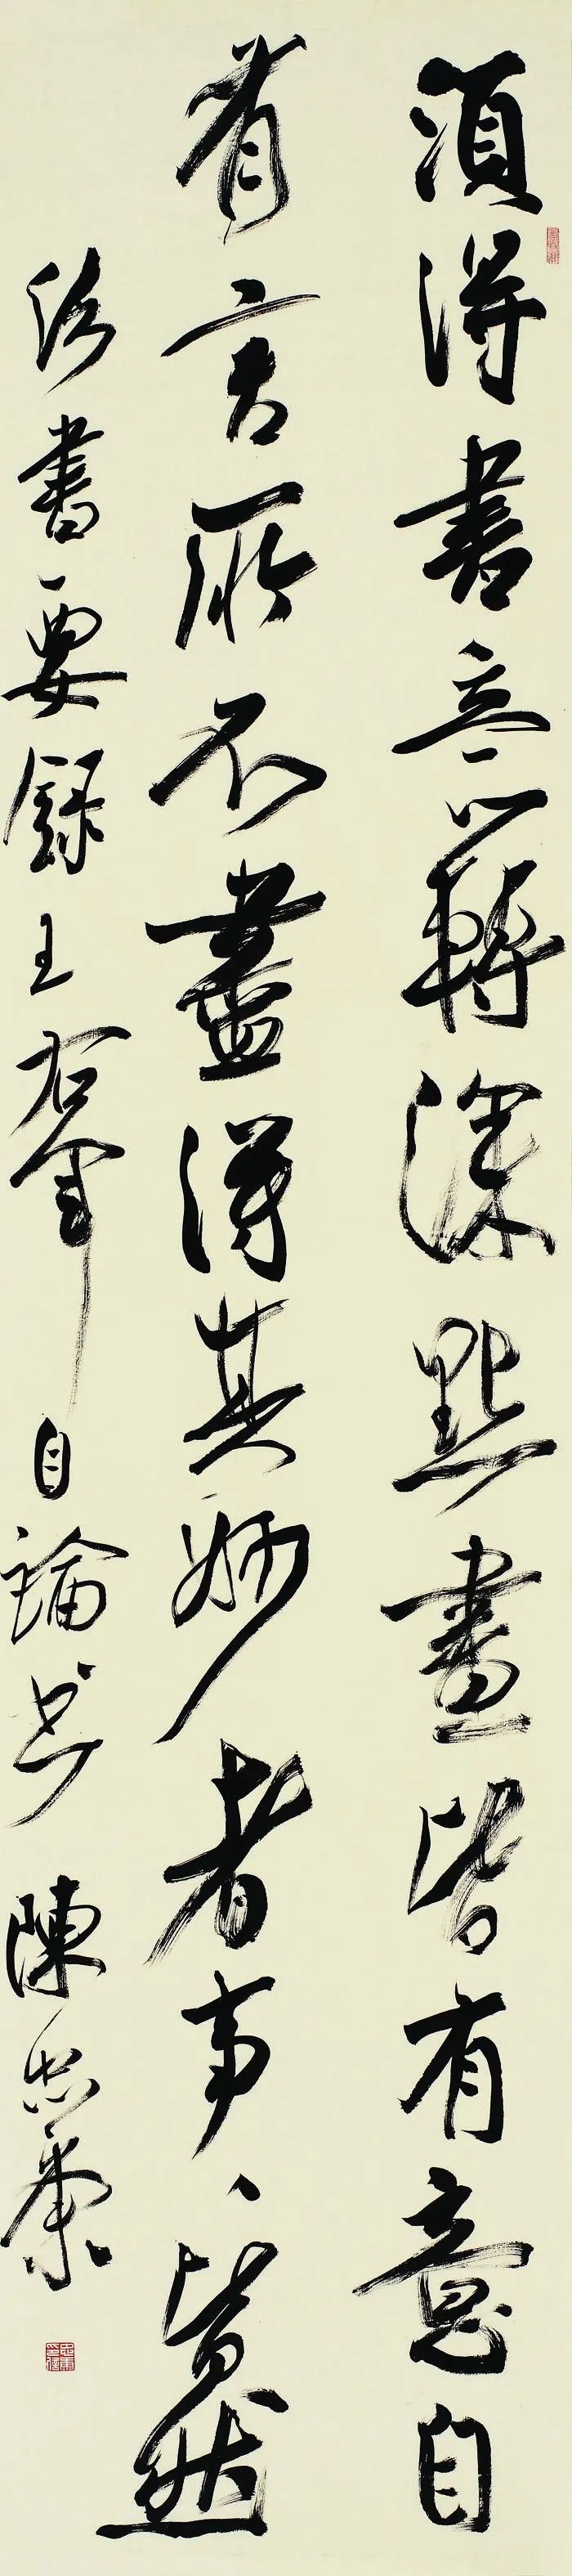 須得書意轉深點畫皆有意自
有言所不盡得其妙者事〻皆然
法書要錄王右軍自論書 陳忠康